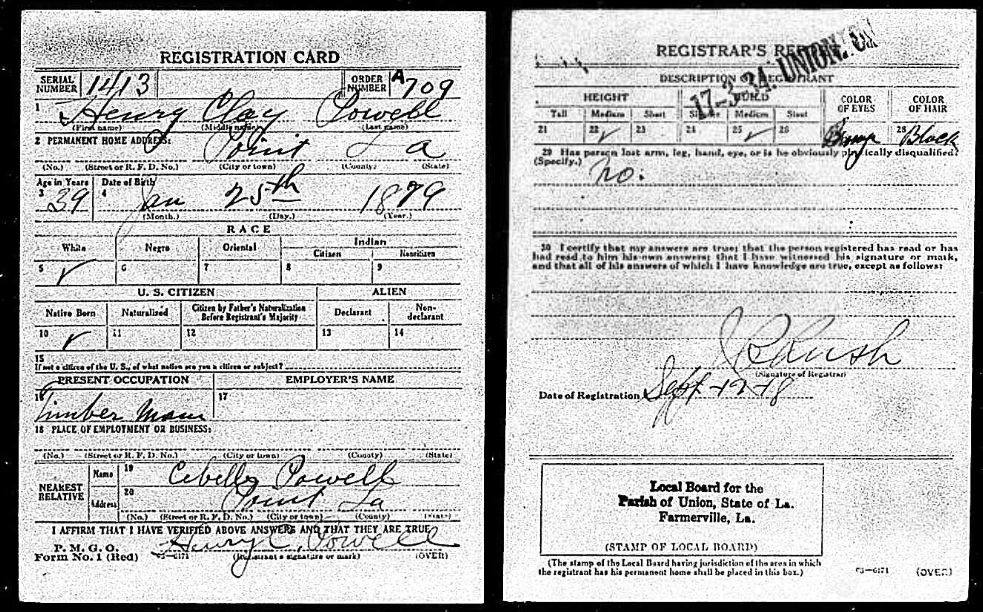 REGISTRATION CARD
SERIAL NUMBER 1413 ORDER NUMBER A709
1 Henry Clay Powell
(First name) (Middle name) (Last name)
2 PERMANENT HOME ADDRESS:
Point La
(No.) (Street or R. F. D. No.) (City or town) (County) (State)
Age in Years Date of Birth
3 39 4 Jan 25th 1879
(Month.) (Day.) (Year.)
RACE
White Negro Oriental Indian
Citizen Noncitizen
5 ✓ 6 7 8 9
U. S. CITIZEN ALIEN
Native Born Naturalized Citizen by Father's Naturalization Before Registrant's Majority Declarant Non-declarant
10 ✓ 11 12 13 14
15
If not a citizen of the U. S., of what nation are you a citizen or subject?
PRESENT OCCUPATION EMPLOYER'S NAME
16 Timber Man 17
18 PLACE OF EMPLOYMENT OR BUSINESS:
(No.) (Street or R. F. D. No.) (City or town) (County) (State)
NEAREST RELATIVE Name 19 Powell
Address 20 Point La
(No.) (Street or R. F. D. No.) (City or town) (County) (State)
I AFFIRM THAT I HAVE VERIFIED ABOVE ANSWERS AND THAT THEY ARE TRUE
P. M. G. O.
Form No. 1 (Red) 03-6171 Henry C. Powell
(Registrant's signature or mark) (OVER)
REGISTRAR'S REPORT
17-3-34. UNION.
DESCRIPTION OF REGISTRANT
HEIGHT BUILD COLOR OF EYES COLOR OF HAIR
Tall Medium Short Slender Medium Stout
21 22 ✓ 23 24 25 ✓ 26 28 Black
29 Has person lost arm, leg, hand, eye, or is he obviously physically disqualified?
(Specify.) No.
30 I certify that my answers are true; that the person registered has read or has
had read to him his own answers; that I have witnessed his signature or mark,
and that all of his answers of which I have knowledge are true, except as follows:
Rush
(Signature of Registrar)
Date of Registration Sept-12-18
Local Board for the
Parish of Union, State of La.
Farmerville, La.
(STAMP OF LOCAL BOARD)
(The stamp of the Local Board having jurisdiction of the area in which
the registrant has his permanent home shall be placed in this box.) 03-6171 (OVER)